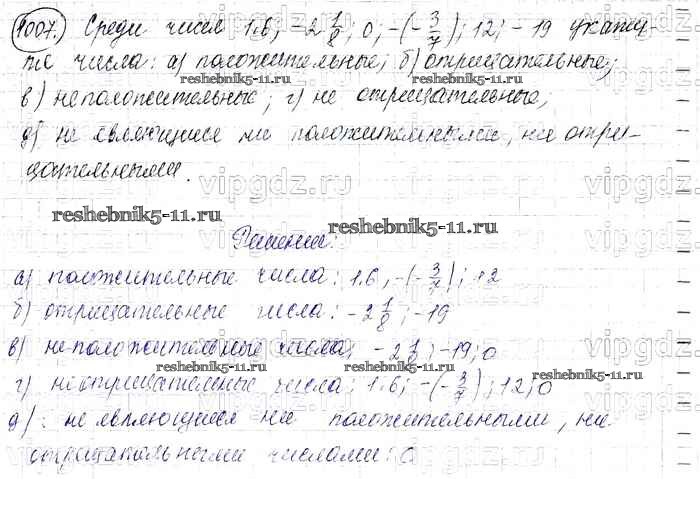 1007. Среди чисел 1,6; -2 1/8; 0; -(-3/7); 12; -19 укажи-
те числа: а) положительные; б) отрицательные;
reshebnik5-11.ru reshebnik5-11.ru
в) неположительные; г) не отрицательные,
д) не являющиеся ни положительными, ни отри-
цательными.
vipgdz.ru vipgdz.ru vipgdz.ru
reshebnik5-11.ru reshebnik5-11.ru
Решение:
а) положительные числа: 1,6, -(-3/7); 12
б) отрицательные числа: -2 1/8; -19
в) неположительные числа; -2 1/8; -19; 0
reshebnik5-11.ru reshebnik5-11.ru reshebnik5-11.ru
г) неотрицательные числа: 1,6; -(-3/7); 12; 0
д): не являющиеся ни положительными, ни
отрицательными числами: 0